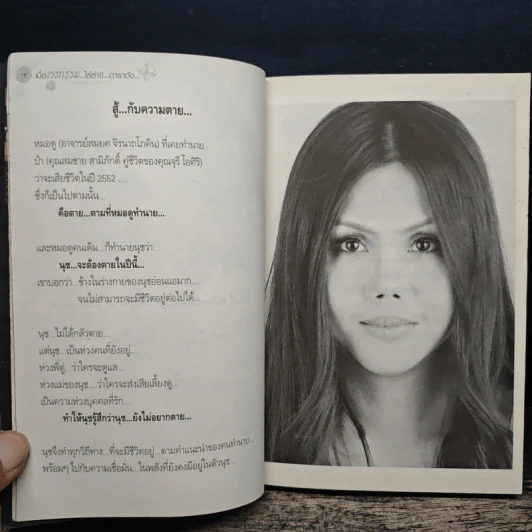 16 เมื่อเวรกรรม...ไล่ล่า!!...ดาราดัง...
สู้...กับความตาย...
หมอดู (อาจารย์สมยศ จิรนาถโภคิน) ที่เคยทำนาย
ป๋า (คุณสมชาย สามิภักดิ์ คู่ชีวิตของคุณจุรี โอศิริ)
ว่าจะเสียชีวิตในปี 2552 .....
ซึ่งก็เป็นไปตามนั้น...
คือตาย...ตามที่หมอดูทำนาย...
และหมอดูคนเดิม...ก็ทำนายนุชว่า...
นุช...จะต้องตายในปีนี้...
เขาบอกว่า...ช้างในร่างกายของนุชอ่อนแอมาก...
จนไม่สามารถจะมีชีวิตอยู่ต่อไปได้...
นุช...ไม่ได้กลัวตาย...
แต่นุช...เป็นห่วงคนที่ยังอยู่...
ห่วงพี่ตู่...ว่าใครจะดูแล...
ห่วงแม่ของนุช....ว่าใครจะส่งเสียเลี้ยงดู...
เป็นความห่วงบุคคลที่รัก...
ทำให้นุชรู้สึกว่านุช...ยังไม่อยากตาย...
นุชจึงทำทุกวิถีทาง...ที่จะมีชีวิตอยู่...ตามคำแนะนำของคนทำนาย...
พร้อมๆ ไปกับความเชื่อมั่น...ในพลังที่ยังคงมีอยู่ในตัวนุช...